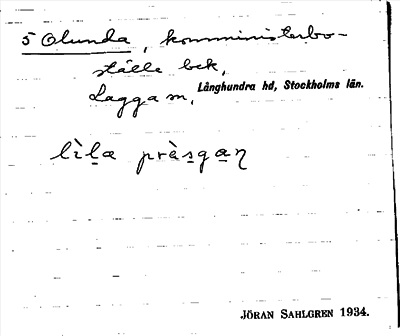 5 Olunda, komministerbo-
ställe bek,
Lagga sn, Långhundra hd, Stockholms län.
lìla pràsgaŋ
JÖRAN SAHLGREN 1934.